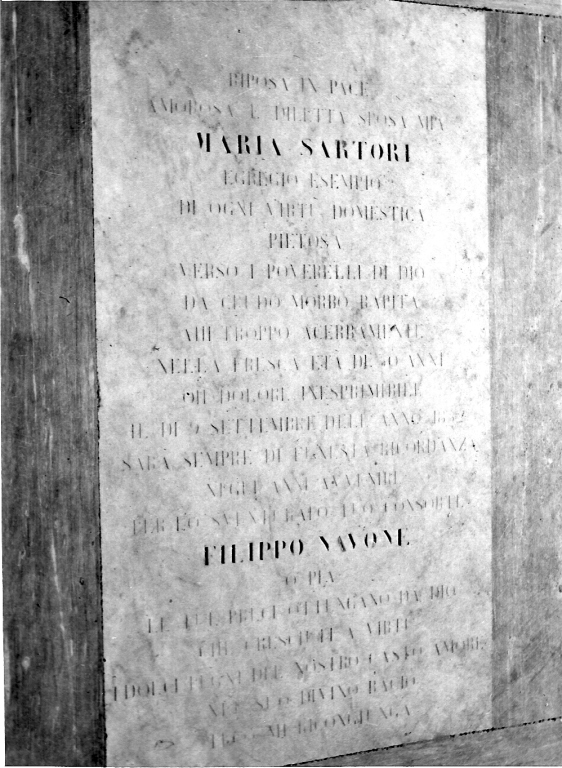 RIPOSA IN PACE
AMOROSA E DILETTA SPOSA MIA
MARIA SARTORI
EGREGIO ESEMPIO
DI OGNI VIRTÙ DOMESTICA
PIETOSA
VERSO I POVERELLI DI DIO
DA CRUDO MORBO RAPITA
AHI TROPPO ACERBAMENTE
NELLA FRESCA ETÀ DI 40 ANNI
OH DOLORE INESPRIMIBILE
IL DI 9 SETTEMBRE DELL' ANNO
SARÀ SEMPRE DI FUNESTA RICORDANZA
NEGLI ANNI AVVENIRE
PER LO SVENTURATO TUO CONSORTE
FILIPPO NAVONE
O PIA
LE TUE PRECI OTTENGANO DA DIO
CHE CRESCIUTI A VIRTÙ
I DOLCI PEGNI DEL NOSTRO CASTO AMORE
NEL SUO DIVINO BACIO
TECO MI RICONGIUNGA